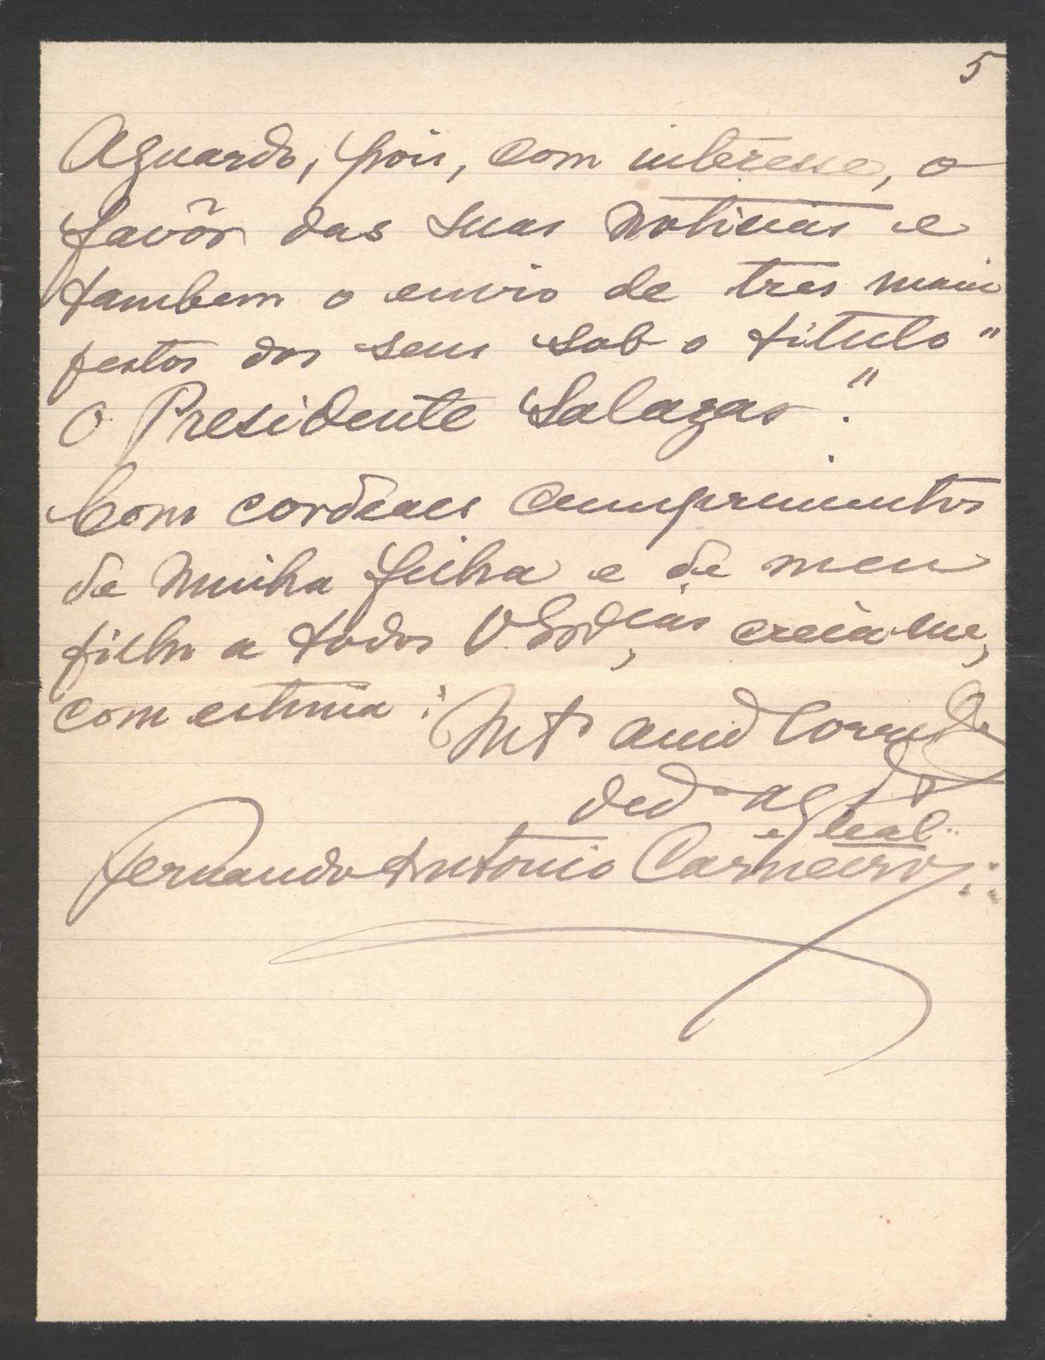 5
Aguardo, pois, com interesse, o
favôr das suas noticias e
tambem o envio de tres mani
festos dos seus sob o titulo "
O Presidente Salazar".
Com cordeaes cumprimentos
de minha filha e de meu
filho a todos V. creia-me,
com estima:
Mtº amº
dedº
e leal..
Fernando Antonio Carneiro